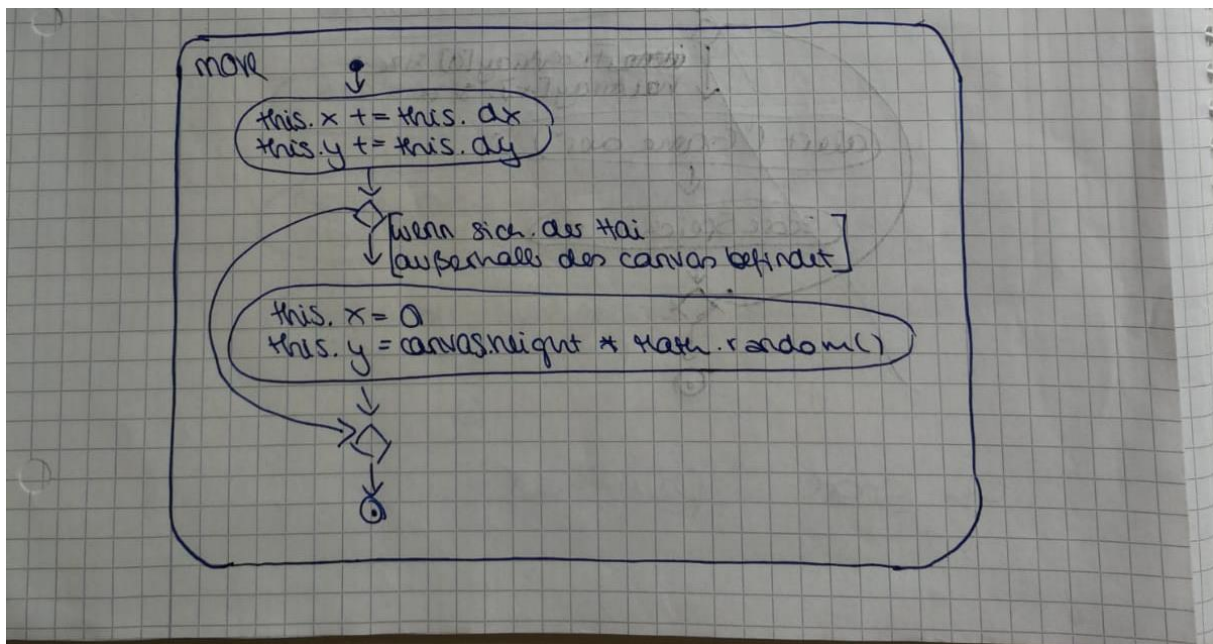 move
this.x += this.dx
this.y += this.dy
[wenn sich der Hai
außerhalb des canvas befindet]
this.x = 0
this.y = canvas.height * Math.random()